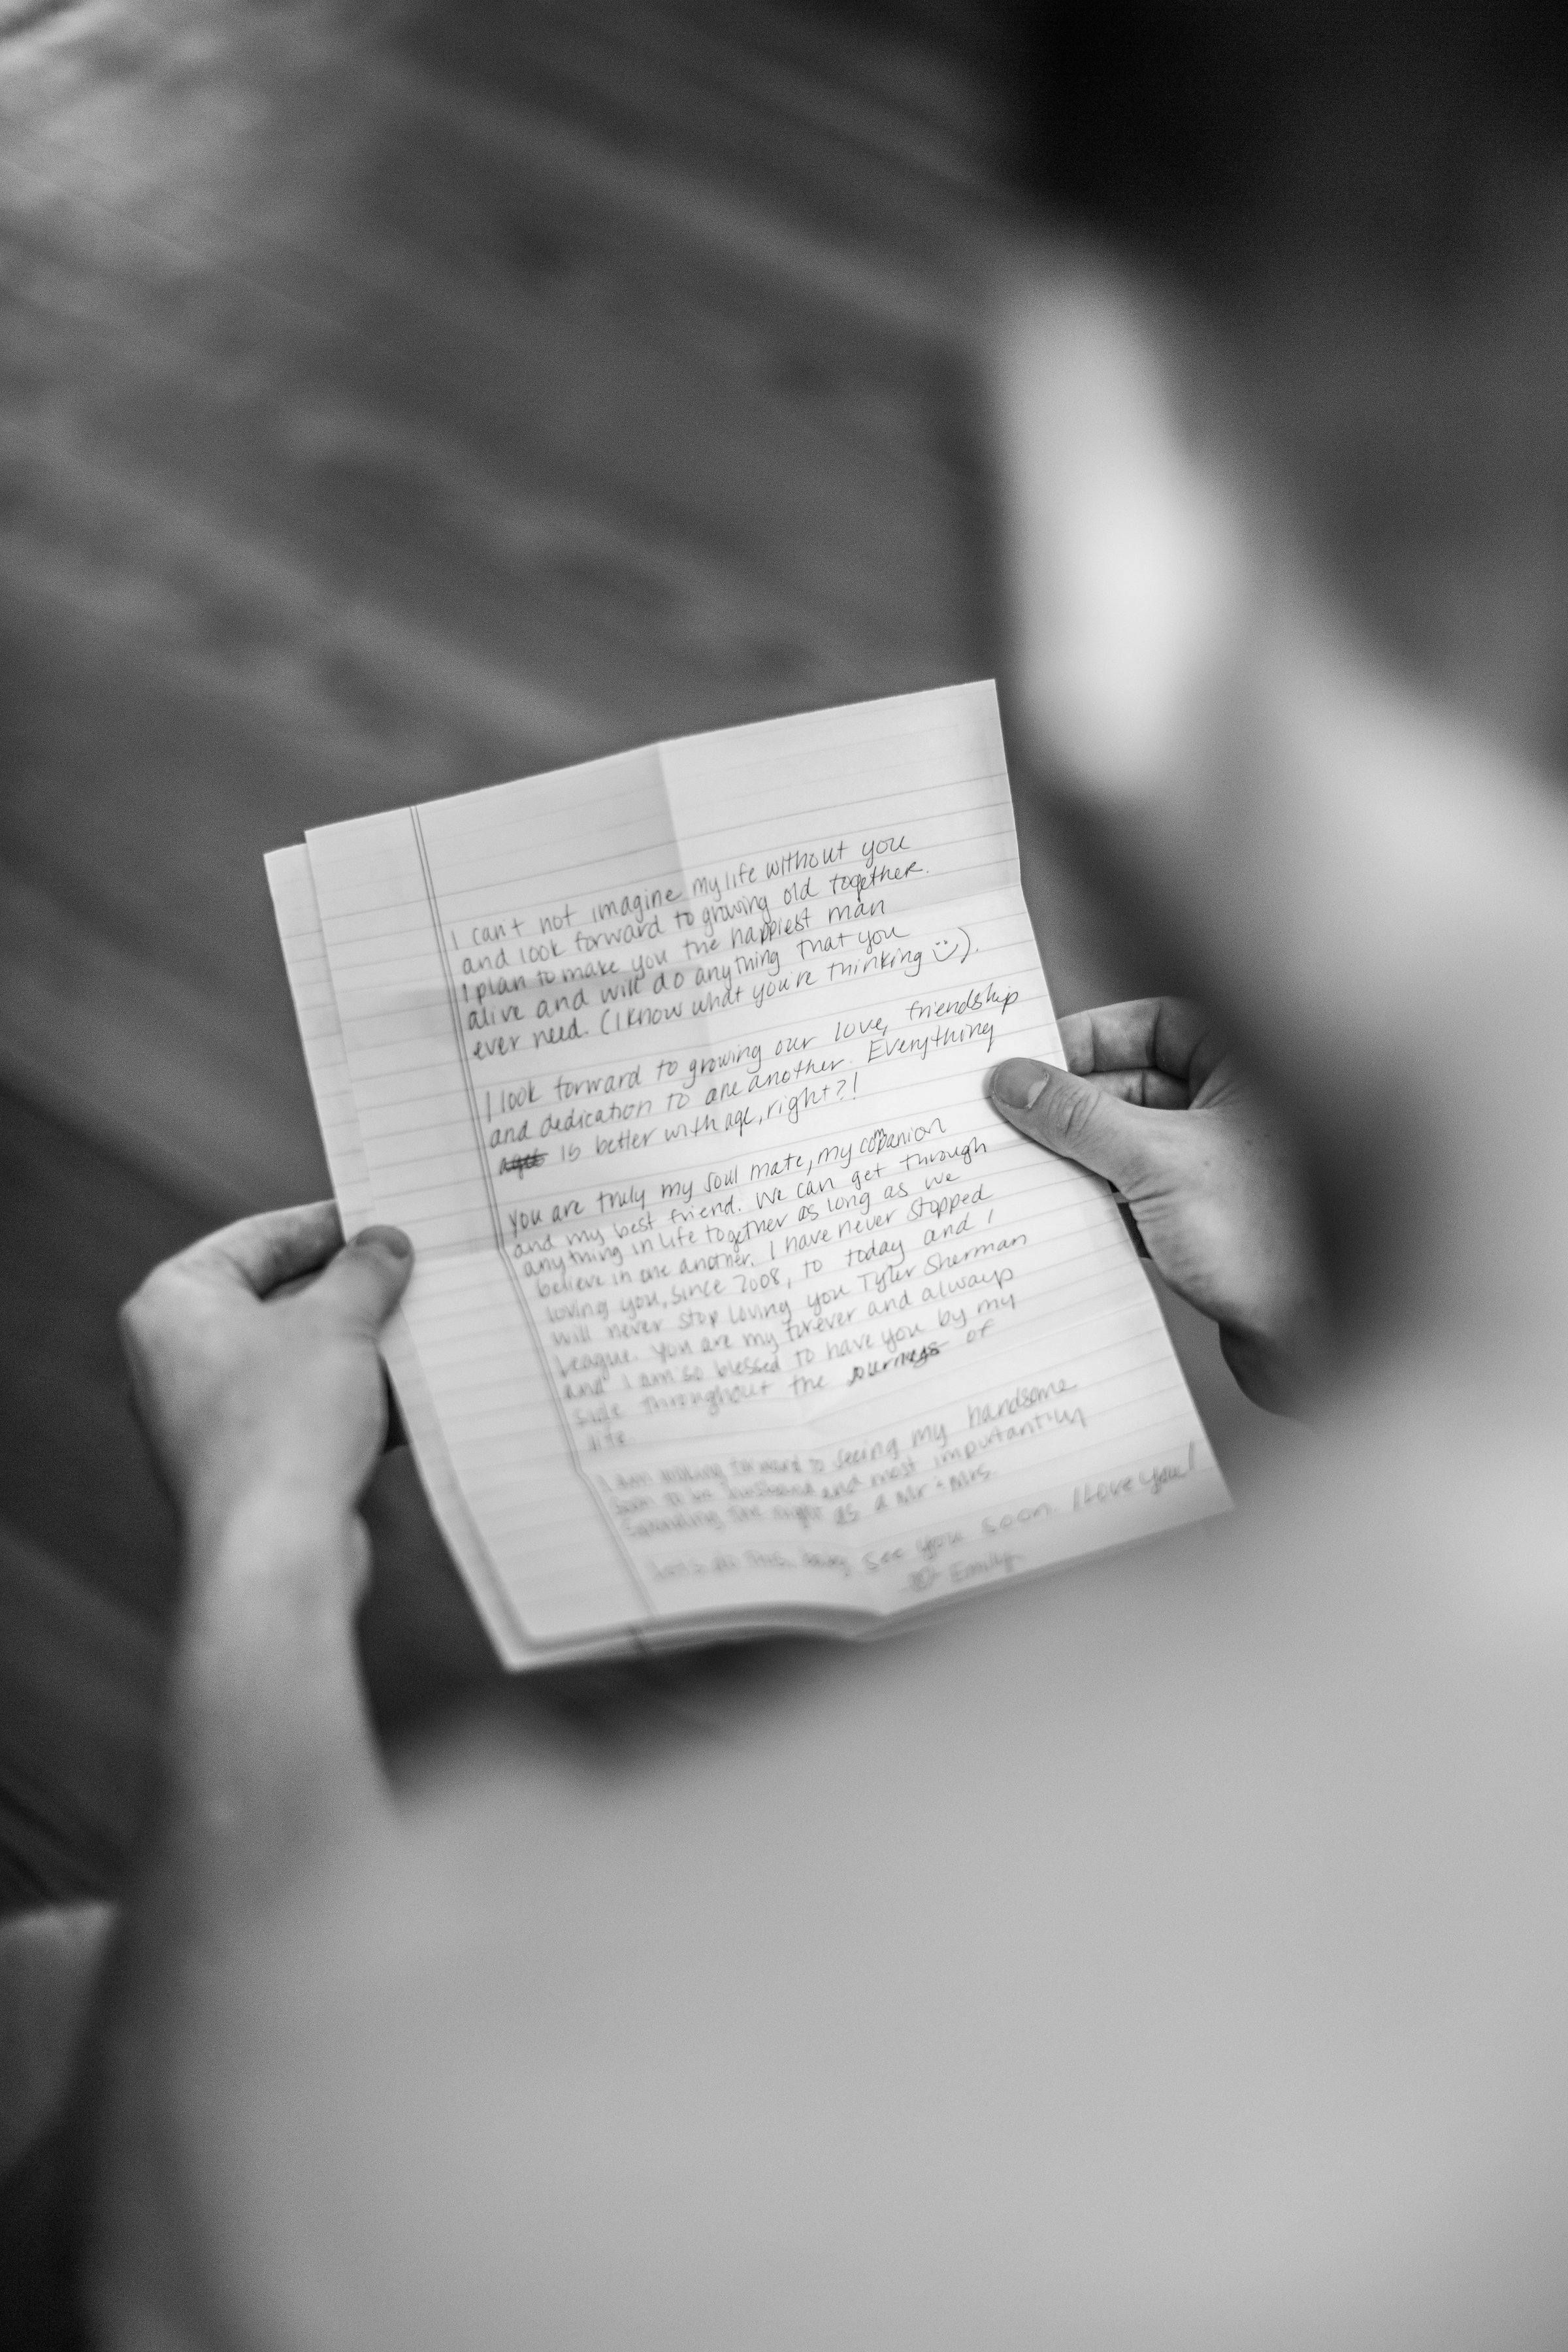 I can't not imagine my life without you
and look forward to growing old together.
I plan to make you the happiest man
alive and will do anything that you
ever need. (I know what you're thinking ☺).
I look forward to growing our love, friendship
and dedication to one another. Everything
is better with age, right?!
You are truly my soul mate, my companion
and my best friend. We can get through
anything in life together as long as we
believe in one another. I have never stopped
loving you, since 2008, to today and I
will never stop loving you Tyler Sherman
League. You are my forever and always
and I am so blessed to have you by my
side throughout the journeys of
life.
I am looking forward to seeing my handsome
soon to be husband and most importantly
spending the night as a Mr & Mrs.
Let's do this, baby see you soon. I Love You!
Emily